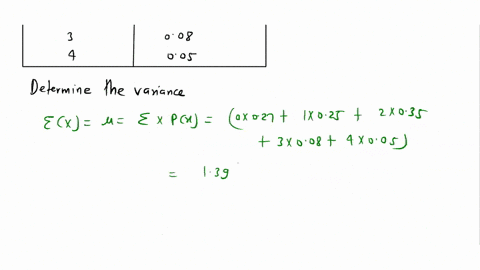 3 0.08
4 0.05
Determine the variance
Σ(X) = μ = Σ x P(x) = (0x0.27 + 1x0.25 + 2x0.35
+ 3x0.08 + 4x0.05)
= 1.39